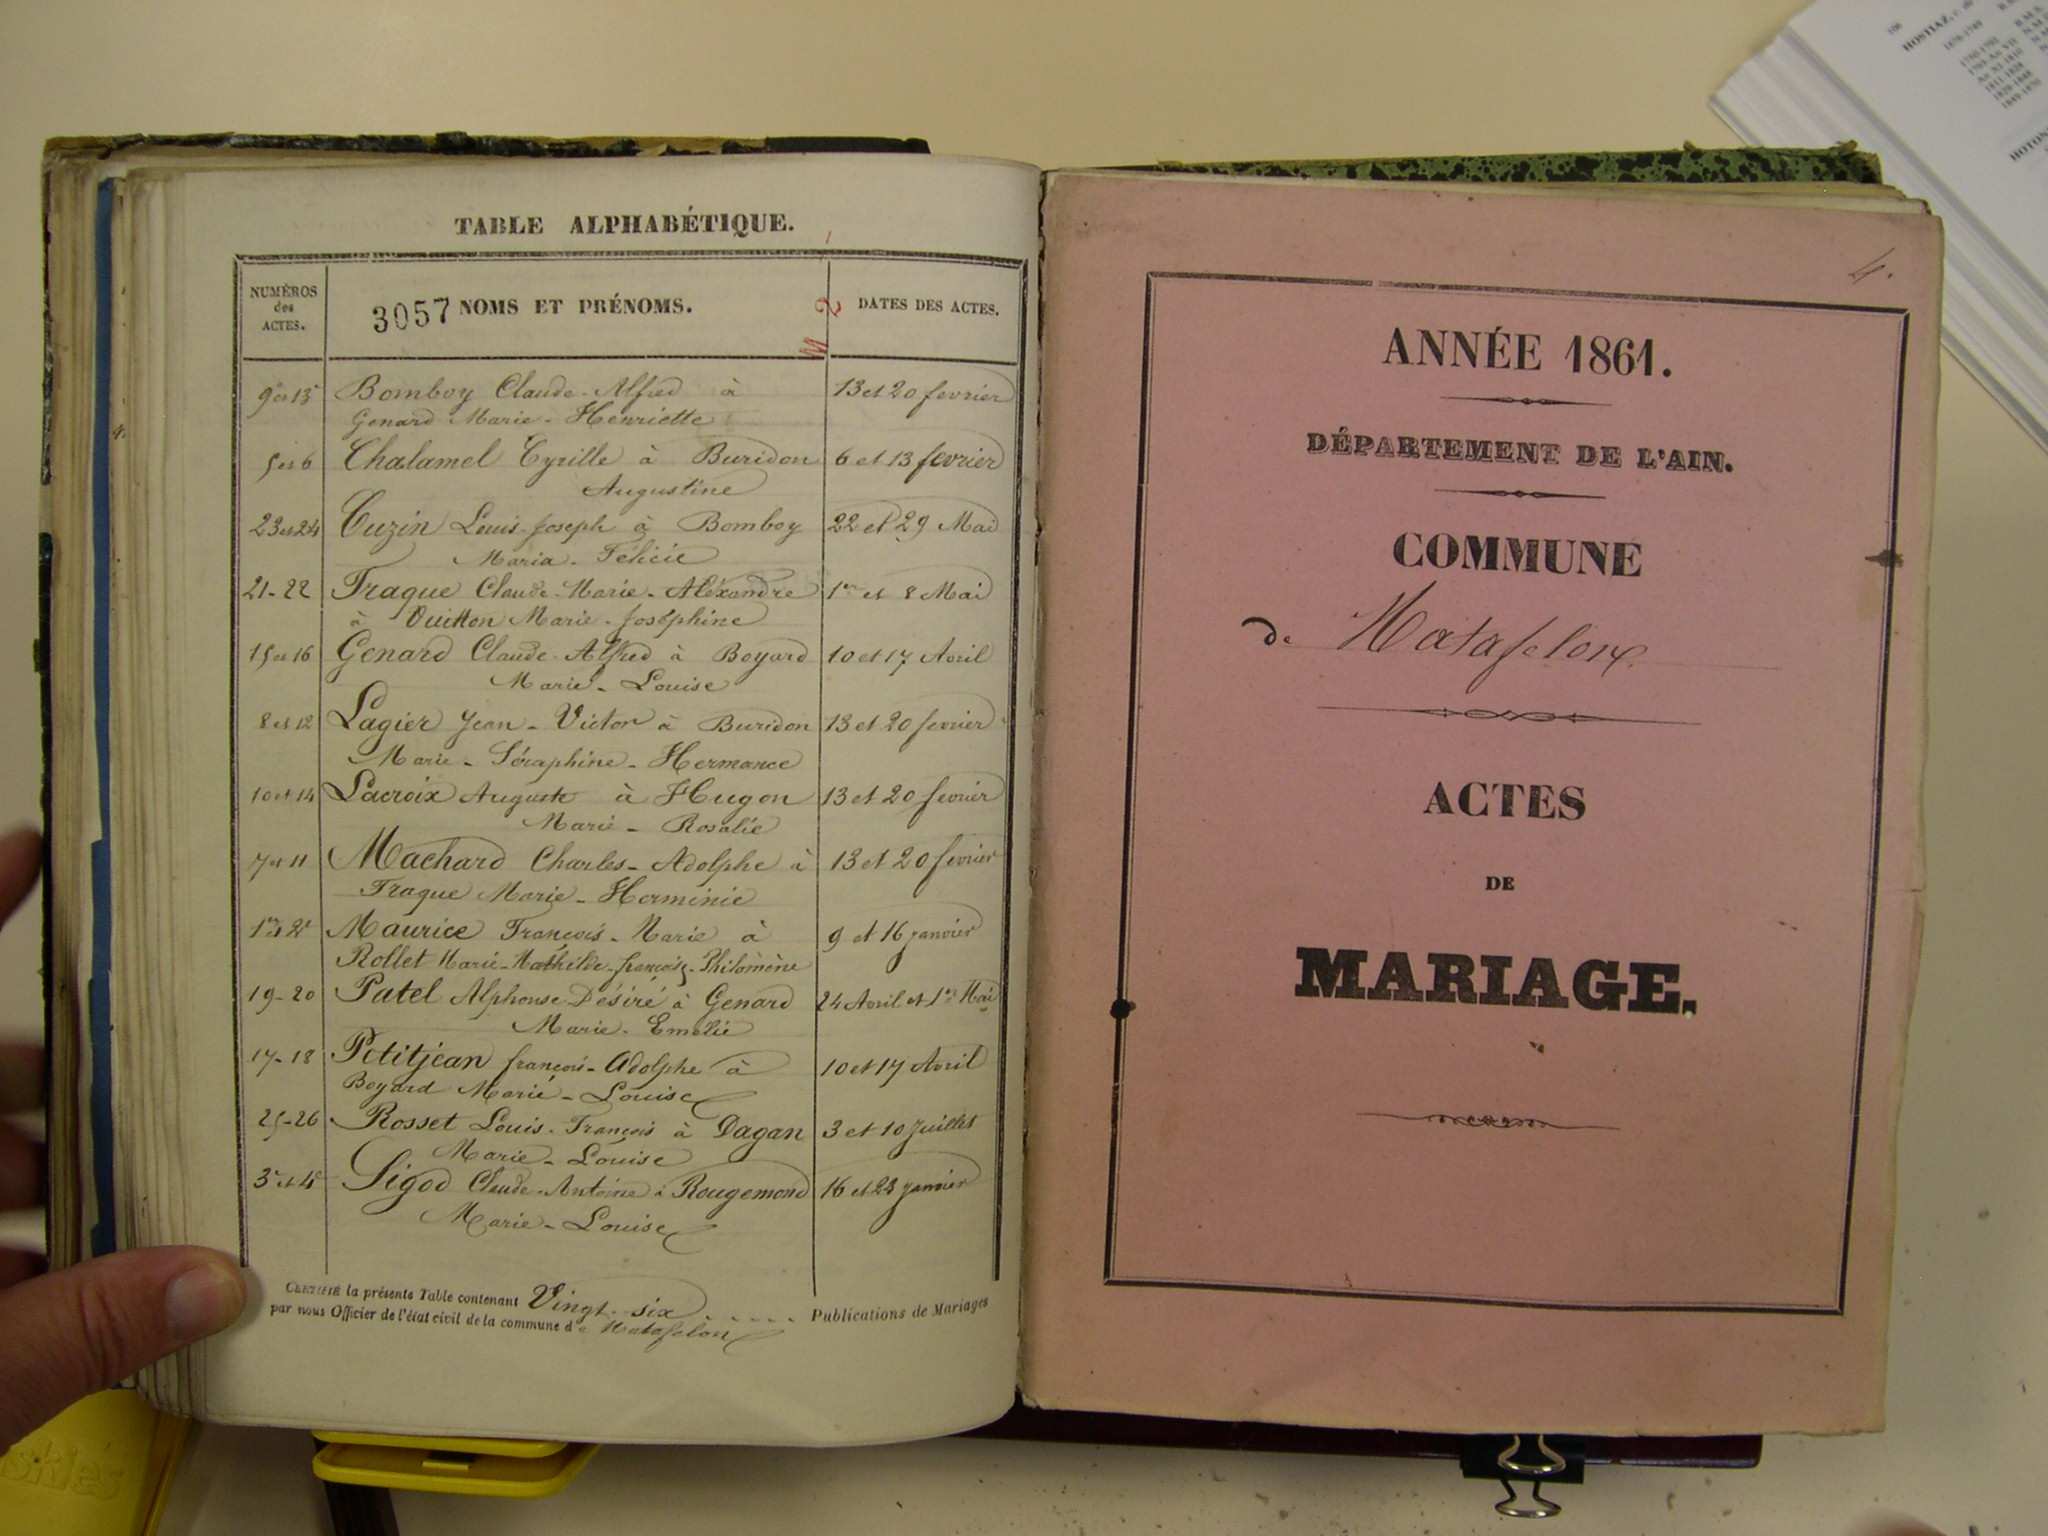 TABLE ALPHABÉTIQUE.
NUMÉROS
des
ACTES.
3057 NOMS ET PRÉNOMS.
M 2
DATES DES ACTES.
9 et 13 Bomboy Claude-Alfred à 13 et 20 fevrier
Genard Marie-Henriette
5 et 6 Chalamel Cyrille à Buridon 6 et 13 fevrier
Augustine
23 et 24 Cuzin Louis-Joseph à Bomboy 22 et 29 Mai
Maria-Félicie
21-22 Fraque Claude-Marie-Aléxandre 1er et 8 Mai
à Vuitton Marie-Joséphine
15 et 16 Genard Claude-Alfred à Boyard 10 et 17 Avril
Marie-Louise
8 et 12 Lagier Jean-Victor à Buridon 13 et 20 fevrier
Marie-Séraphine-Hermance
10 et 14 Lacroix Auguste à Hugon 13 et 20 fevrier
Marie-Rosalie
7 et 11 Machard Charles-Adolphe à 13 et 20 fevrier
Fraque Marie-Herminie
1er et 2e Maurice François-Marie à 9 et 16 janvier
Rollet Marie-Mathilde-françoise-Philomène
19-20 Patel Alphonse Désiré à Genard 24 Avril et 1er Mai
Marie-Emelie
17-18 Petitjean françois-Adolphe à 10 et 17 Avril
Boyard Marie-Louise
25-26 Rosset Louis-François à Dagan 3 et 10 Juillet
Marie-Louise
3e et 4e Sigod Claude-Antoine à Rougemond 16 et 23 janvier
Marie-Louise
CERTIFIÉ la présente Table contenant Vingt-six Publications de Mariages
par nous Officier de l'état civil de la commune de Matafelon
4.
ANNÉE 1861.
DÉPARTEMENT DE L'AIN.
COMMUNE
de Matafelon
ACTES
DE
MARIAGE.
106
HOSTIAZ,